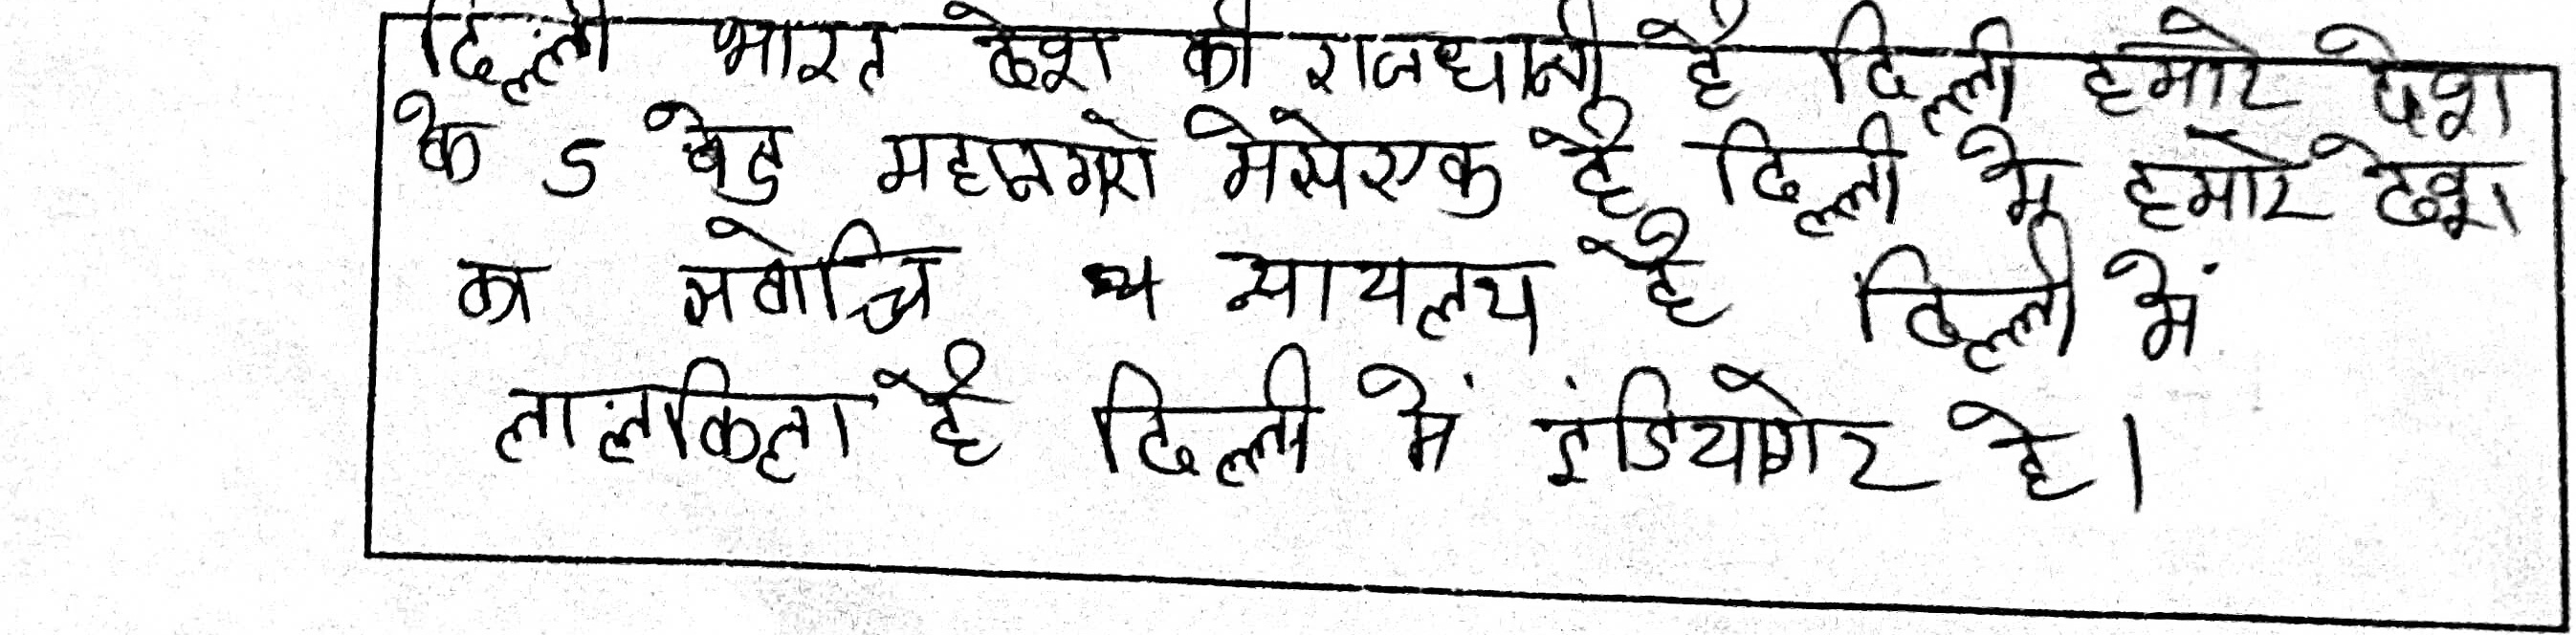 दिल्ली भारत देश की राजधानी है दिल्ली हमारे देश
के 5 बेड महानगरो मेसेएक है दिल्ली मे हमारे देश
का सर्वोच्चि न्यायलय है दिल्ली में
लालकिला है दिल्ली में इंडियागेर है।